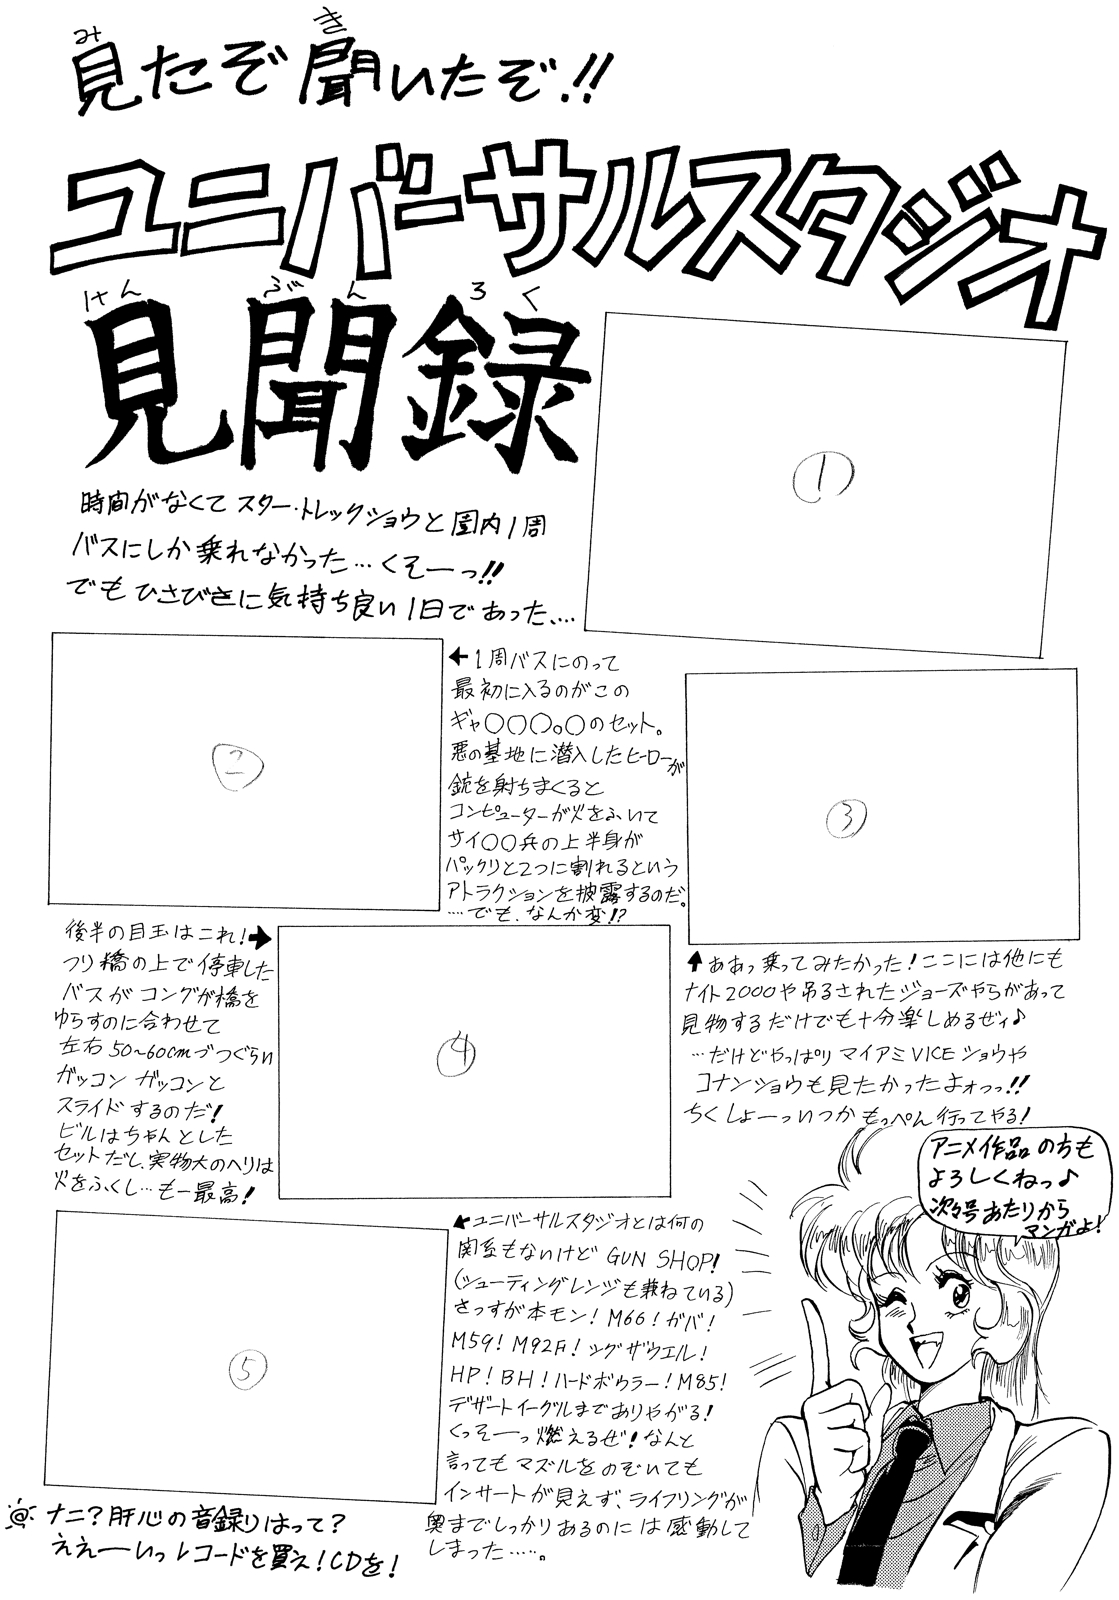 見たぞ聞いたぞ!!
ユニバーサルスタジオ
見聞録
時間がなくてスター・トレックショウと園内1周
バスにしか乗れなかった…くそーっ!!
でもひさびさに気持ち良い1日であった….
①
②
←1周バスにのって
最初に入るのがこの
ギャ○○○。○のセット。
悪の基地に潜入したヒーローが
銃を射ちまくると
コンピューターが火をふいて
サイ○○兵の上半身が
パックリと2つに割れるという
アトラクションを披露するのだ。
…でも、なんか変!?
③
↑ああっ乗ってみたかった!ここには他にも
ナイト2000や吊るされたジョーズやらがあって
見物するだけでも十分楽しめるぜィ♪
…だけどやっぱりマイアミVICEショウや
コナンショウも見たかったよォっっ!!
ちくしょーっいつかもっぺん行ってやる!
後半の目玉はこれ!➡
つり橋の上で停車した
バスがコングが橋を
ゆらすのに合わせて
左右50~60cmづつぐらい
ガッコン ガッコンと
スライドするのだ!
ビルはちゃんとした
セットだし、実物大のヘリは
火をふくし…もー最高!
④
⑤
↙ユニバーサルスタジオとは何の
関系もないけど GUN SHOP!
(シューティングレンジも兼ねている)
さっすが本モン!M66!ガバ!
M59!M92F!シグザウエル!
HP!BH!ハードボウラー!M85!
デザートイーグルまでありやがる!
くっそーっ燃えるぜ!なんと
言ってもマズルをのぞいても
インサートが見えず、ライフリングが
奥までしっかりあるのには感動して
しまった……。
アニメ作品のちも
よろしくねっ♪
次々号あたりから
マンガよ!
ナニ?肝心の音録りはって?
ええーいっレコードを買え!CDを!